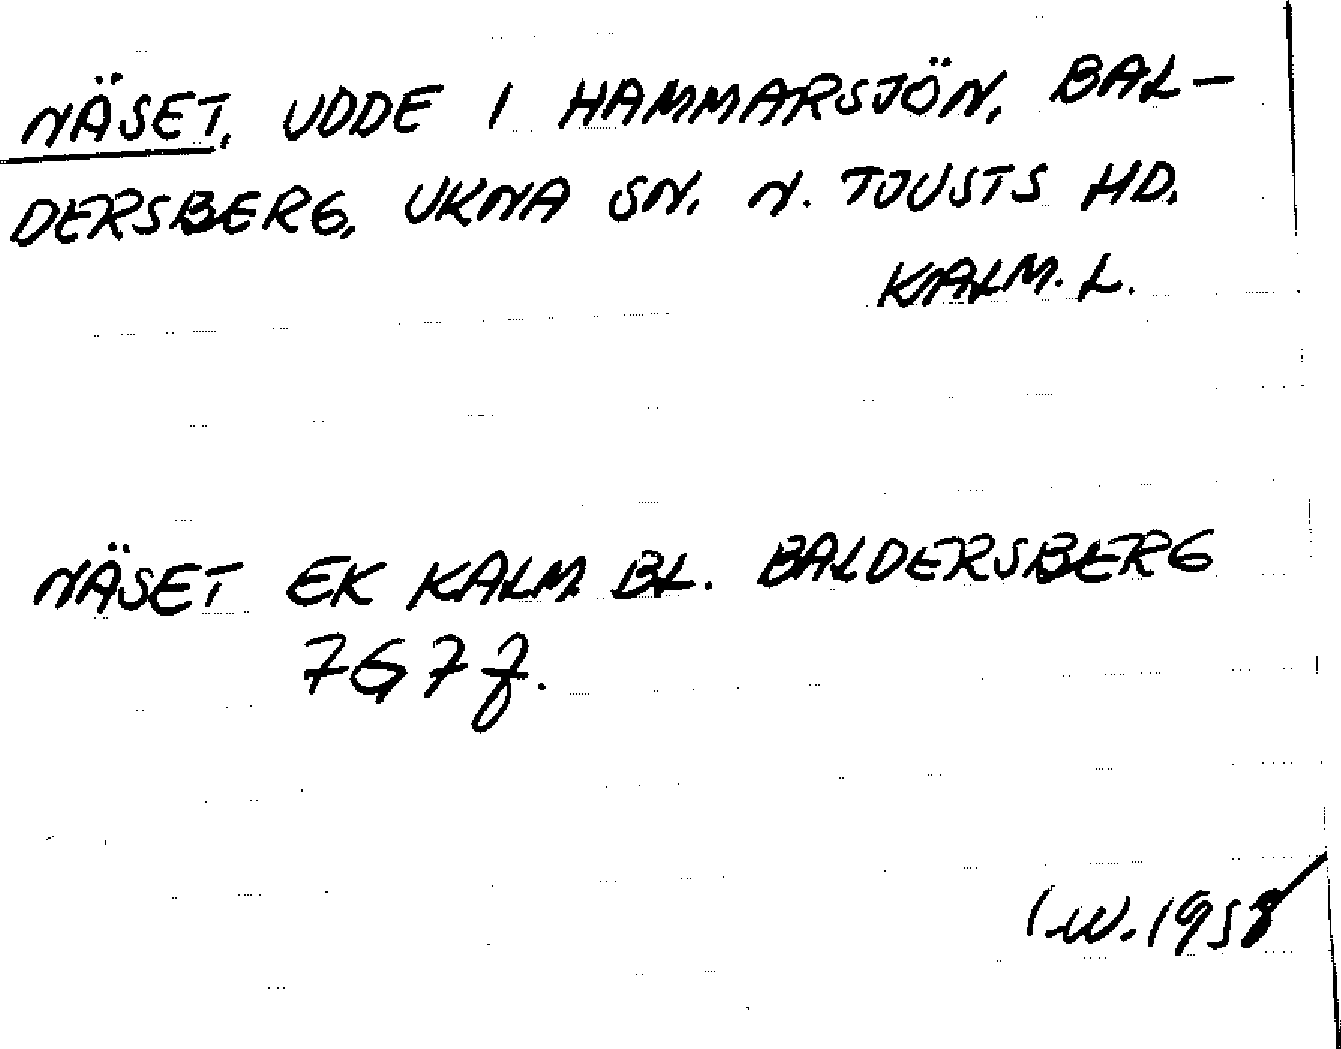 NÄSET, UDDE I HAMMARSJÖN, BAL-
DERSBERG, UKNA SN. N. TJUSTS HD.
KALM. L.
NÄSET EK KALM. BL. BALDERSBERG
7G7f.
I.W. 1958